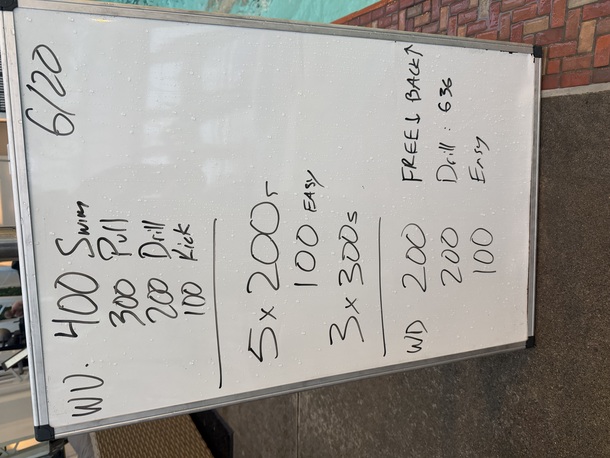 6/20
WU. 400 Swim
300 Pull
200 Drill
100 Kick
5 x 200s
100 EASY
3 x 300s
WD 200 FREE↓ BACK↑
200 Drill: 636
100 Easy